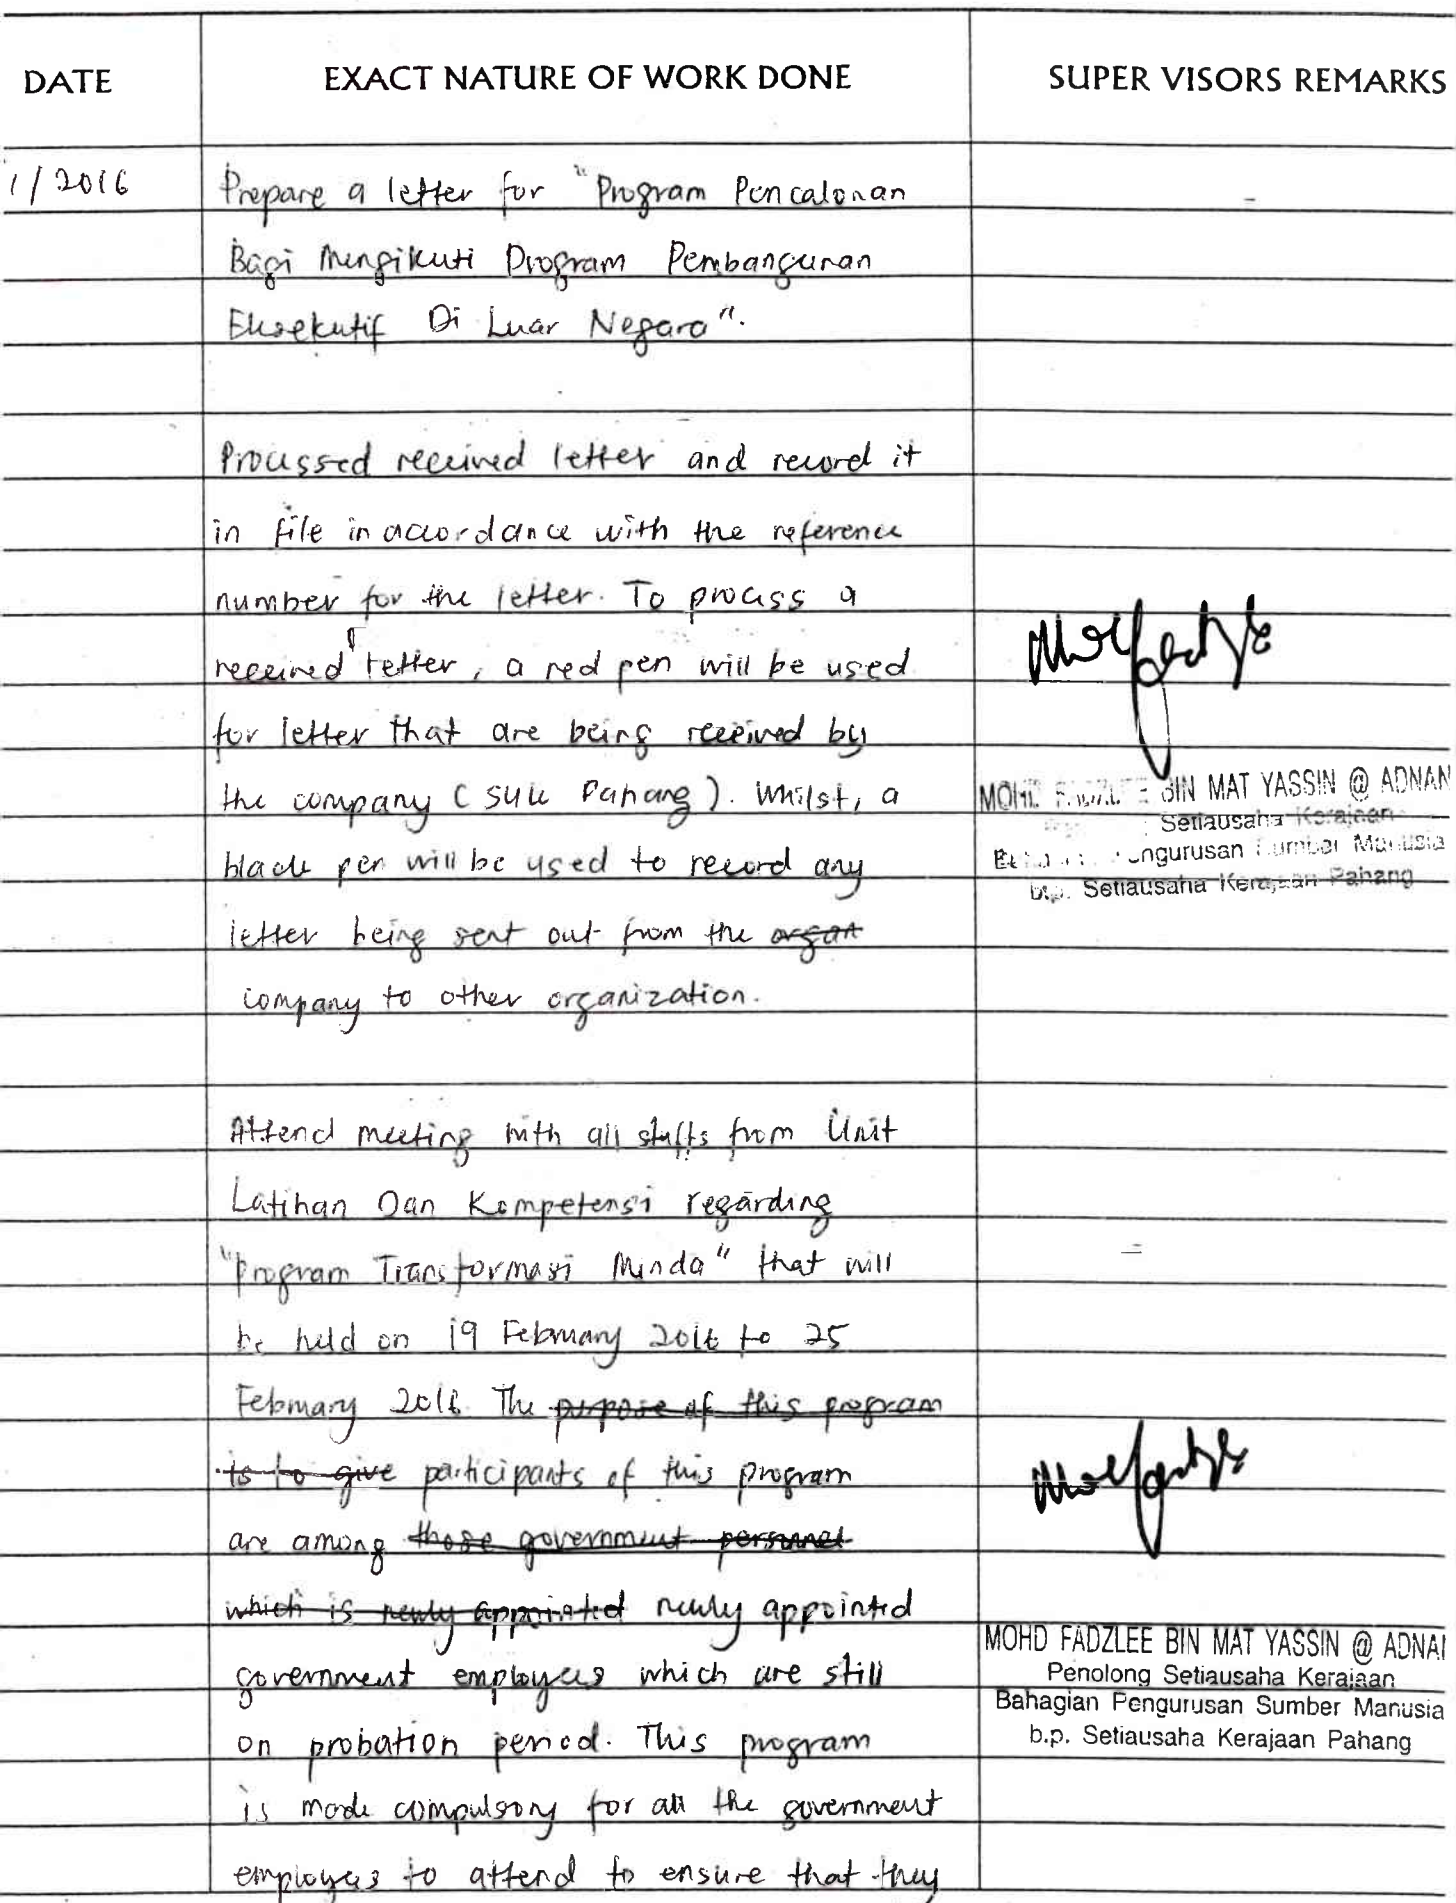 DATE EXACT NATURE OF WORK DONE SUPER VISORS REMARKS
1/2016 Prepare a letter for "Program Pencalonan
Bagi Mengikuti Program Pembangunan
Eksekutif Di Luar Negara".
Processed received letter and record it
in file in accordance with the reference
number for the letter. To process a
received letter, a red pen will be used
for letter that are being received by
the company (SUK Pahang). Whilst, a
black pen will be used to record any
letter being sent out from the organ
company to other organization.
MOHD FADZLEE BIN MAT YASSIN @ ADNAN
Setiausaha Kerajaan
Pengurusan Sumber Manusia
b.p. Setiausaha Kerajaan Pahang
Attend meeting with all staffs from Unit
Latihan Dan Kompetensi regarding
"Program Transformasi Minda" that will
be held on 19 February 2016 to 25
February 2016. The purpose of this program
is to give participants of this program
are among those government personnel
which is newly appointed newly appointed
government employees which are still
on probation period. This program
is made compulsory for all the government
employees to attend to ensure that they
MOHD FADZLEE BIN MAT YASSIN @ ADNAN
Penolong Setiausaha Kerajaan
Bahagian Pengurusan Sumber Manusia
b.p. Setiausaha Kerajaan Pahang